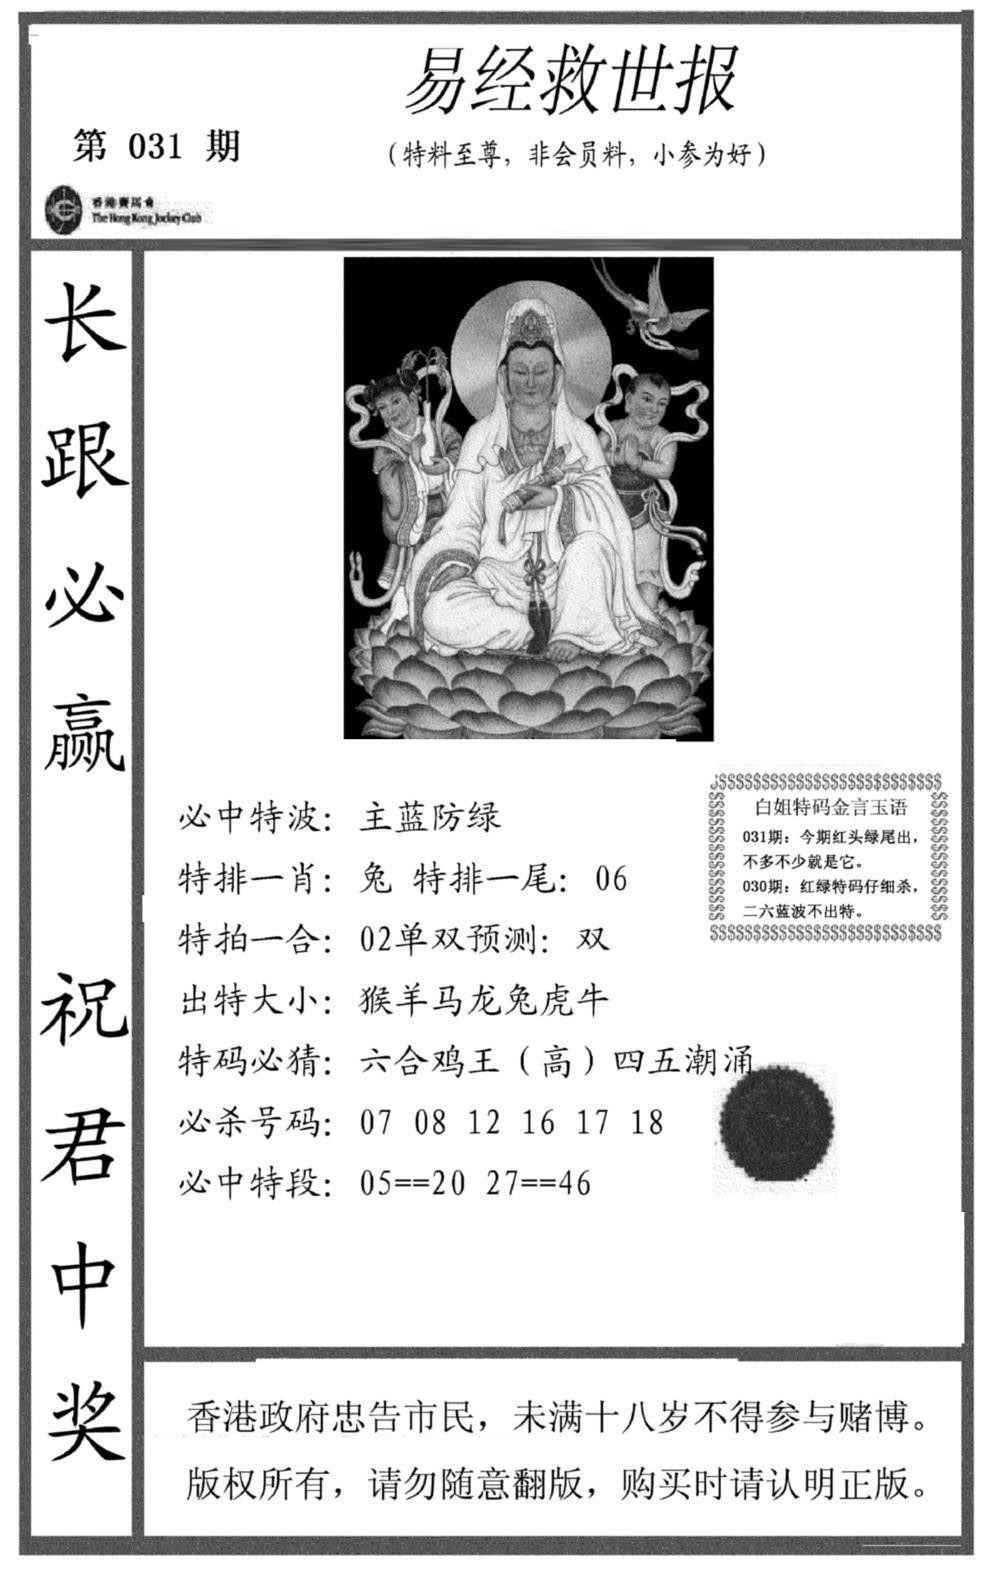 易经救世报
第 031 期
（特料至尊，非会员料，小参为好）
香港賽馬會
The Hong Kong Jockey Club
长跟必赢 祝君中奖
必中特波：主蓝防绿
特排一肖：兔 特排一尾：06
特拍一合：02单双预测：双
出特大小：猴羊马龙兔虎牛
特码必猜：六合鸡王（高）四五潮涌
必杀号码：07 08 12 16 17 18
必中特段：05==20 27==46
白姐特码金言玉语
031期：今期红头绿尾出，
不多不少就是它。
030期：红绿特码仔细杀，
二六蓝波不出特。
香港政府忠告市民，未满十八岁不得参与赌博。
版权所有，请勿随意翻版，购买时请认明正版。